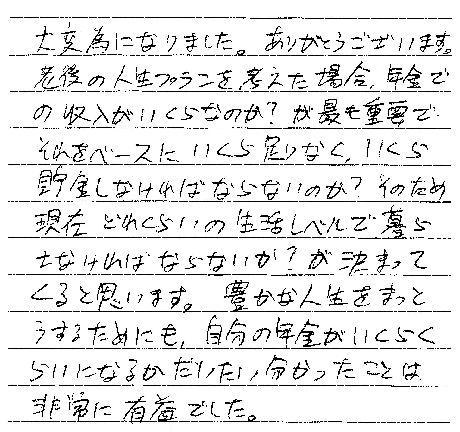 大変為になりました。ありがとうございます。
老後の人生プランを考えた場合、年金で
の収入がいくらなのか？が最も重要で
それをベースにいくら足りなく、いくら
貯金しなければならないのか？そのため
現在どれくらいの生活レベルで暮ら
さなければならないか？が決まって
くると思います。豊かな人生をまっと
うするためにも、自分の年金がいくらく
らいになるかだいたい分かったことは
非常に有益でした。